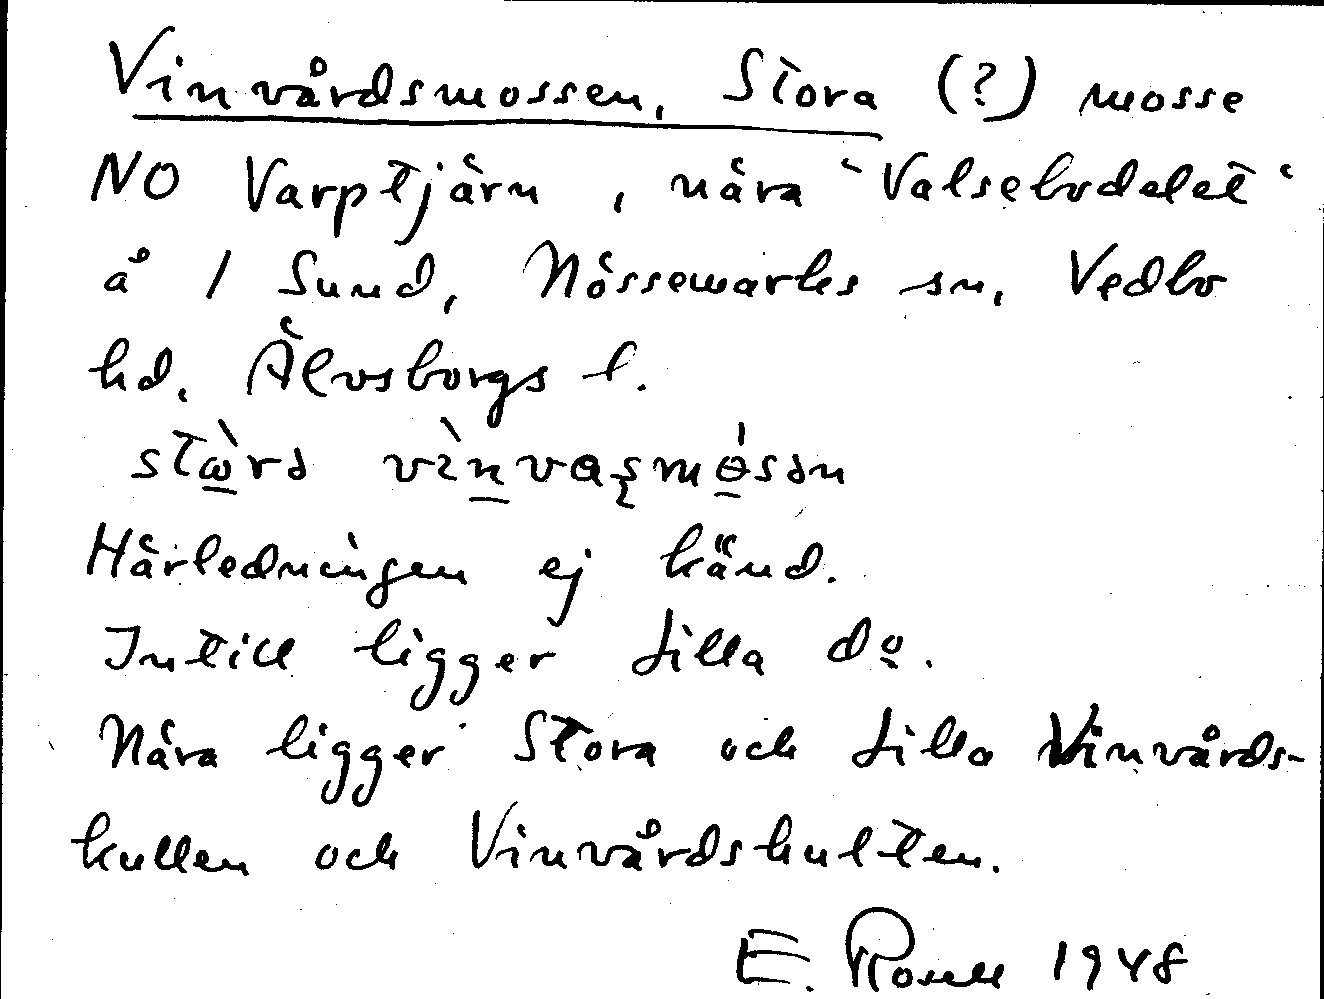 Vinvårdsmossen, Stora (?) mosse
NO Varptjärn, nära "Valsebodalet"
å 1 Sund, Nössemarks sn, Vedbo
hd, Älvsborgs l.
stὼrə vìnvaʂmɵ́sən
Härledningen ej känd.
Intill ligger Lilla do.
Nära ligger Stora och Lilla Vinvårds-
kullen och Vinvårdskulten.
E. Rosell 1948